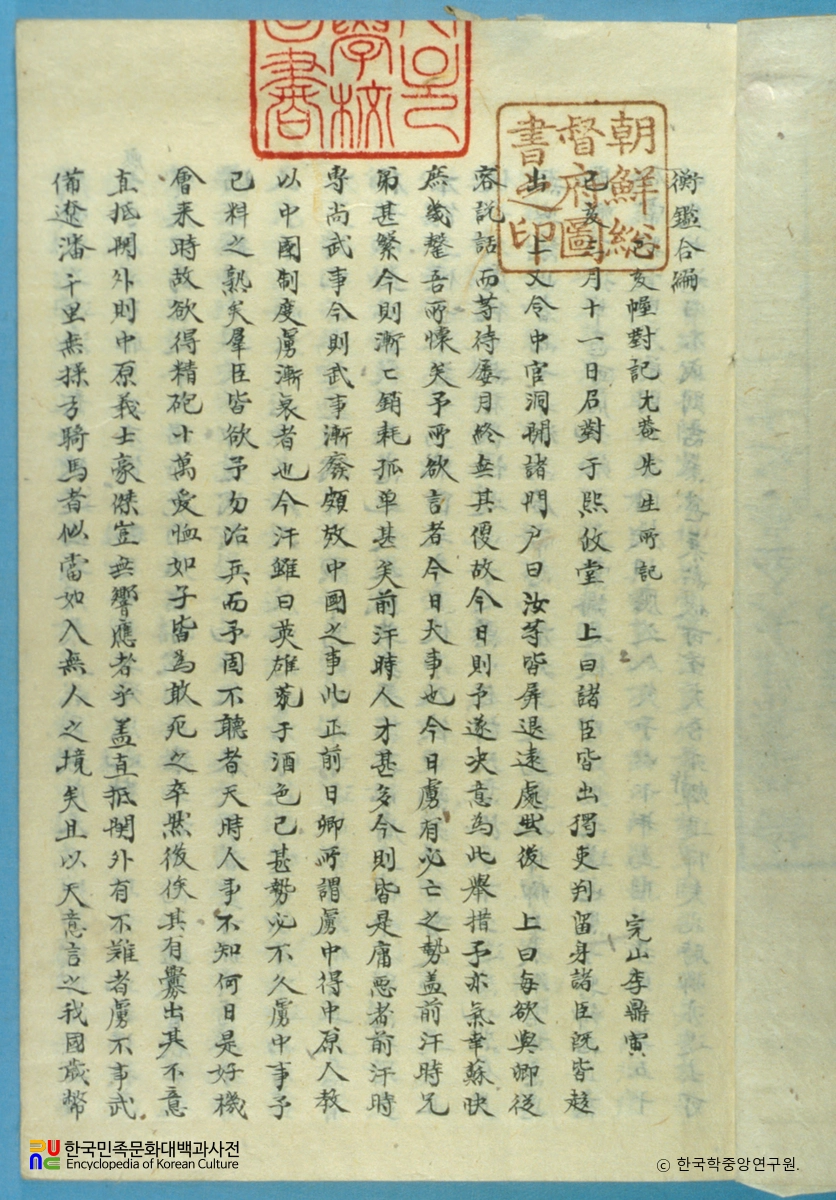 衡鑑合編
己亥幄對記 尤菴先生所記 完山李鼎寅
己亥月十一日召對于熙政堂 上曰諸臣皆出獨吏判留身諸臣既皆趍
出 上又令中官洞開諸門戶曰汝等皆屏退遠處然後 上曰每欲與卿從
容說話而等待屡月終無其便故今日則予遂决意為此舉措予亦氣幸蘇快
庶幾罄吾所懷矣予所欲言者今日大事也今日虜有必亡之勢盖前汗時兄
弟甚繁今則漸〻銷耗孤单甚矣前汗時人才甚多今則皆是庸惡者前汗時
専尚武事今則武事漸廢頗效中國之事此正前日卿所謂虜中得中原人教
以中國制度虜漸衰者也今汗雖曰英雄荒于酒色已甚勢必不久虜中事予
已料之熟矣羣臣皆欲予勿治兵而予固不聽者天時人事不知何日是好機
會来時故欲得精砲十萬愛恤如子皆為敢死之卒然後俟其有釁出其不意
直抵関外則中原義士豪傑豈無響應者乎盖直抵関外有不難者虜不事武
備遼瀋千里無操弓騎馬者似當如入無人之境矣且以天意言之我國歲幣
朝鮮総
督府圖
書之印
學校
書
한국민족문화대백과사전
Encyclopedia of Korean Culture
© 한국학중앙연구원.